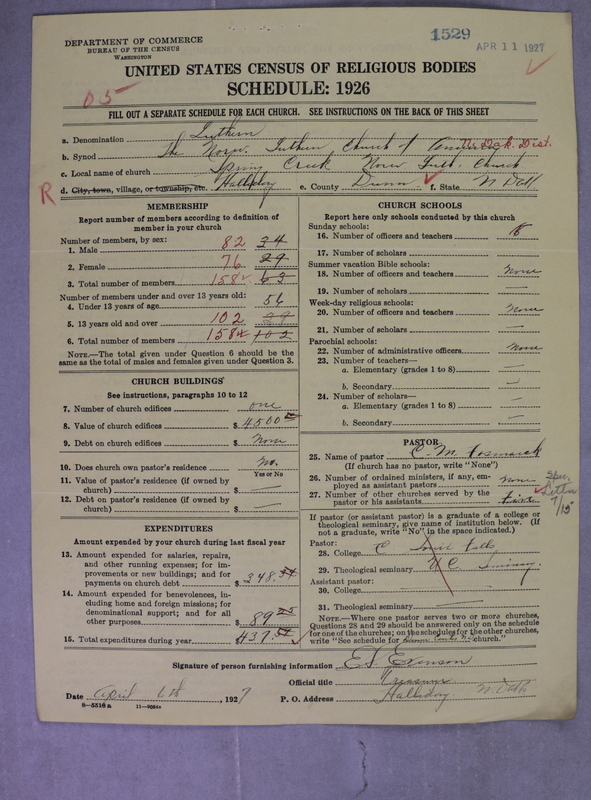 1529
APR 11 1927
DEPARTMENT OF COMMERCE
BUREAU OF THE CENSUS
WASHINGTON
UNITED STATES CENSUS OF RELIGIOUS BODIES
SCHEDULE: 1926
05
FILL OUT A SEPARATE SCHEDULE FOR EACH CHURCH. SEE INSTRUCTIONS ON THE BACK OF THIS SHEET
a. Denomination Luthern
b. Synod The Norw. Luthern Church of America N. Dak. Dist.
c. Local name of church Spring Creek Norw Luth. Church
R d. City, town, village, or township, etc. Halliday e. County Dunn f. State N Dak.
MEMBERSHIP
Report number of members according to definition of
member in your church
Number of members, by sex:
1. Male 82 34
2. Female 76 29
3. Total number of members 158 63
Number of members under and over 13 years old:
4. Under 13 years of age 56
5. 13 years old and over 102
6. Total number of members 158 102
NOTE.—The total given under Question 6 should be
same as the total of males and females given under Question 3.
CHURCH BUILDINGS
See instructions, paragraphs 10 to 12
7. Number of church edifices one
8. Value of church edifices $ 4500
9. Debt on church edifices $ None
10. Does church own pastor's residence No.
Yes or No
11. Value of pastor's residence (if owned by
church) $ —
12. Debt on pastor's residence (if owned by
church) $ —
EXPENDITURES
Amount expended by your church during last fiscal year
13. Amount expended for salaries, repairs,
and other running expenses; for im-
provements or new buildings; and for
payments on church debt $ 348.
14. Amount expended for benevolences, in-
cluding home and foreign missions; for
denominational support; and for all
other purposes $ 89 25
15. Total expenditures during year $ 437.
CHURCH SCHOOLS
Report here only schools conducted by this church
Sunday schools:
16. Number of officers and teachers
17. Number of scholars —
Summer vacation Bible schools:
18. Number of officers and teachers None
19. Number of scholars —
Week-day religious schools:
20. Number of officers and teachers None
21. Number of scholars —
Parochial schools:
22. Number of administrative officers None
23. Number of teachers—
a. Elementary (grades 1 to 8) —
b. Secondary —
24. Number of scholars—
a. Elementary (grades 1 to 8) —
b. Secondary —
PASTOR
25. Name of pastor C. M.
(If church has no pastor, write "None")
26. Number of ordained ministers, if any, em-
ployed as assistant pastors None
27. Number of other churches served by the
pastor or his assistants five
Letter
7/15
If pastor (or assistant pastor) is a graduate of a college or
theological seminary, give name of institution below. (If
not a graduate, write "No" in the space indicated.)
Pastor:
28. College
29. Theological seminary Seminary.
Assistant pastor:
30. College —
31. Theological seminary —
NOTE.—Where one pastor serves two or more churches,
Questions 28 and 29 should be answered only on the schedule
for one of the churches; on the schedules for the other churches,
write "See schedule for church."
Signature of person furnishing information Evenson
Official title Treasurer
Date April 6th, 1927 P. O. Address Halliday N. Dak
8—5516 a